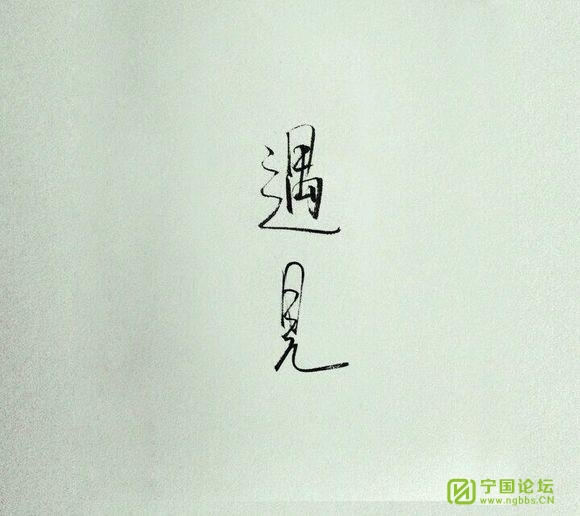 遇
見
宁国论坛
www.ngbbs.CN